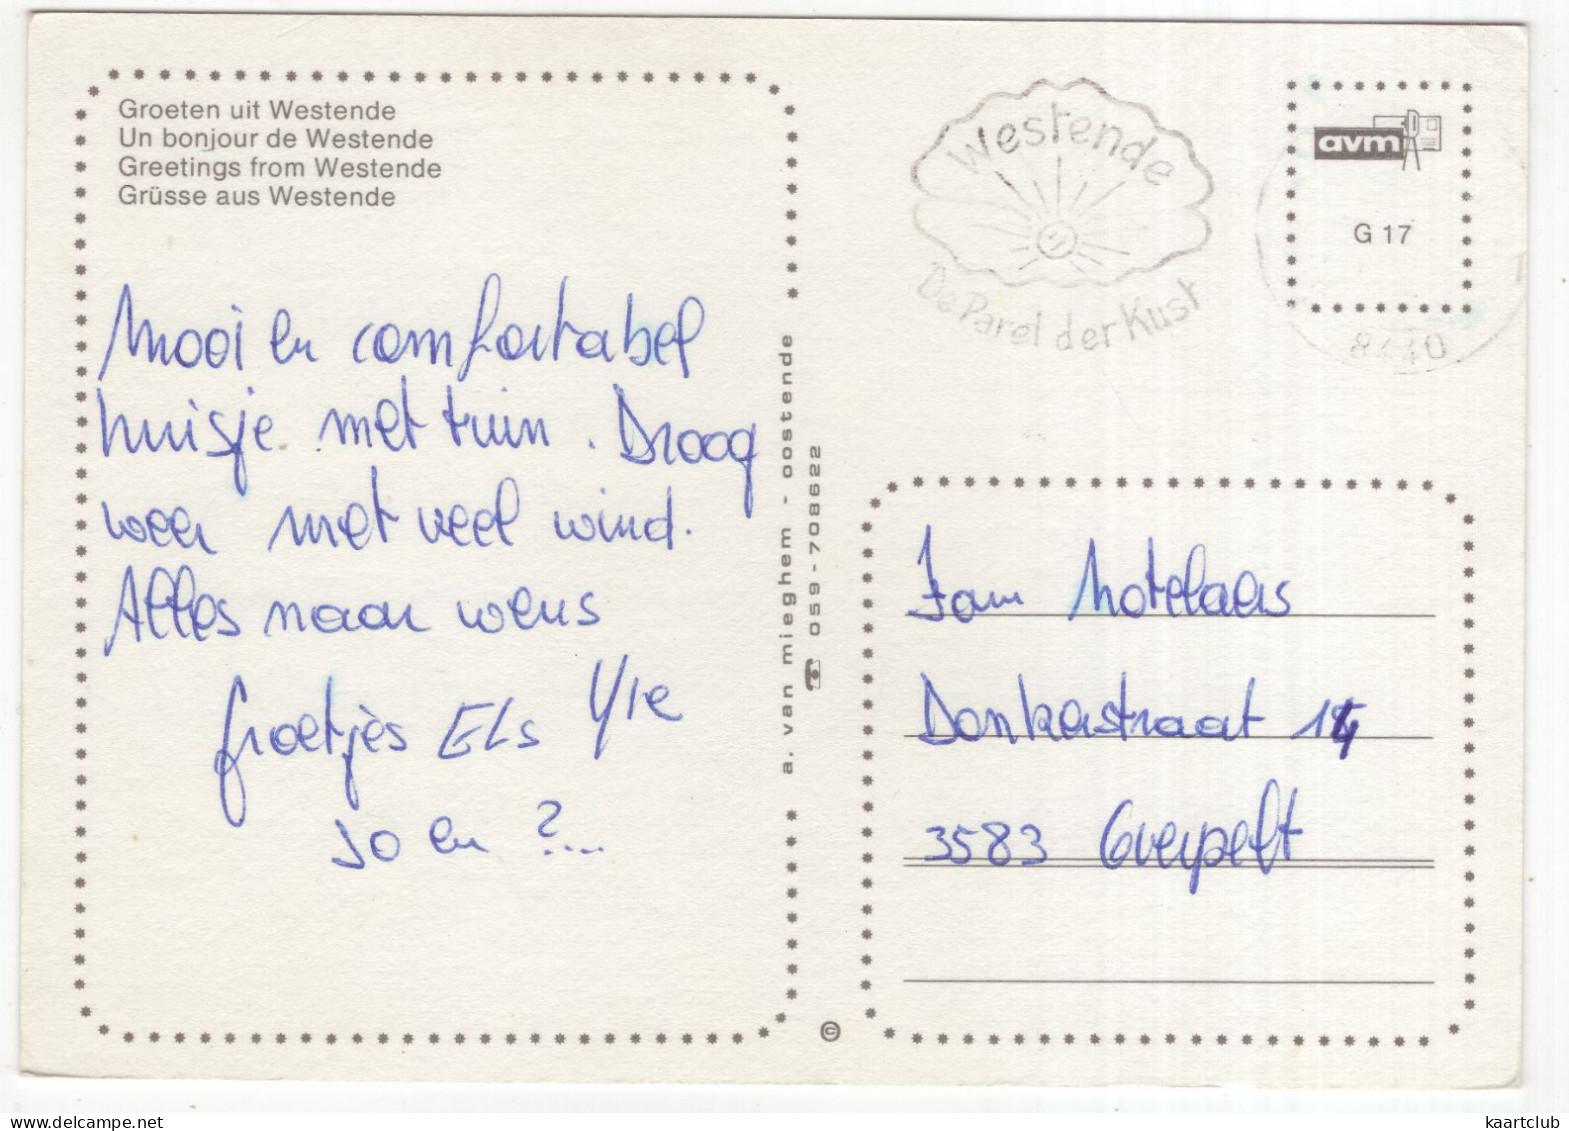 Groeten uit Westende
Un bonjour de Westende
Greetings from Westende
Grüsse aus Westende
Mooi en comfortabel
huisje met tuin. Droog
weer met veel wind.
Alles naar wens
groetjès Els Yre
Jo en ?...
a. van mieghem - oostende
059-708622
©
Westende
De Parel der Kust
avm
G 17
8440
Fam Notelaers
Donkerstraat 14
3583 Overpelt
kaartclub